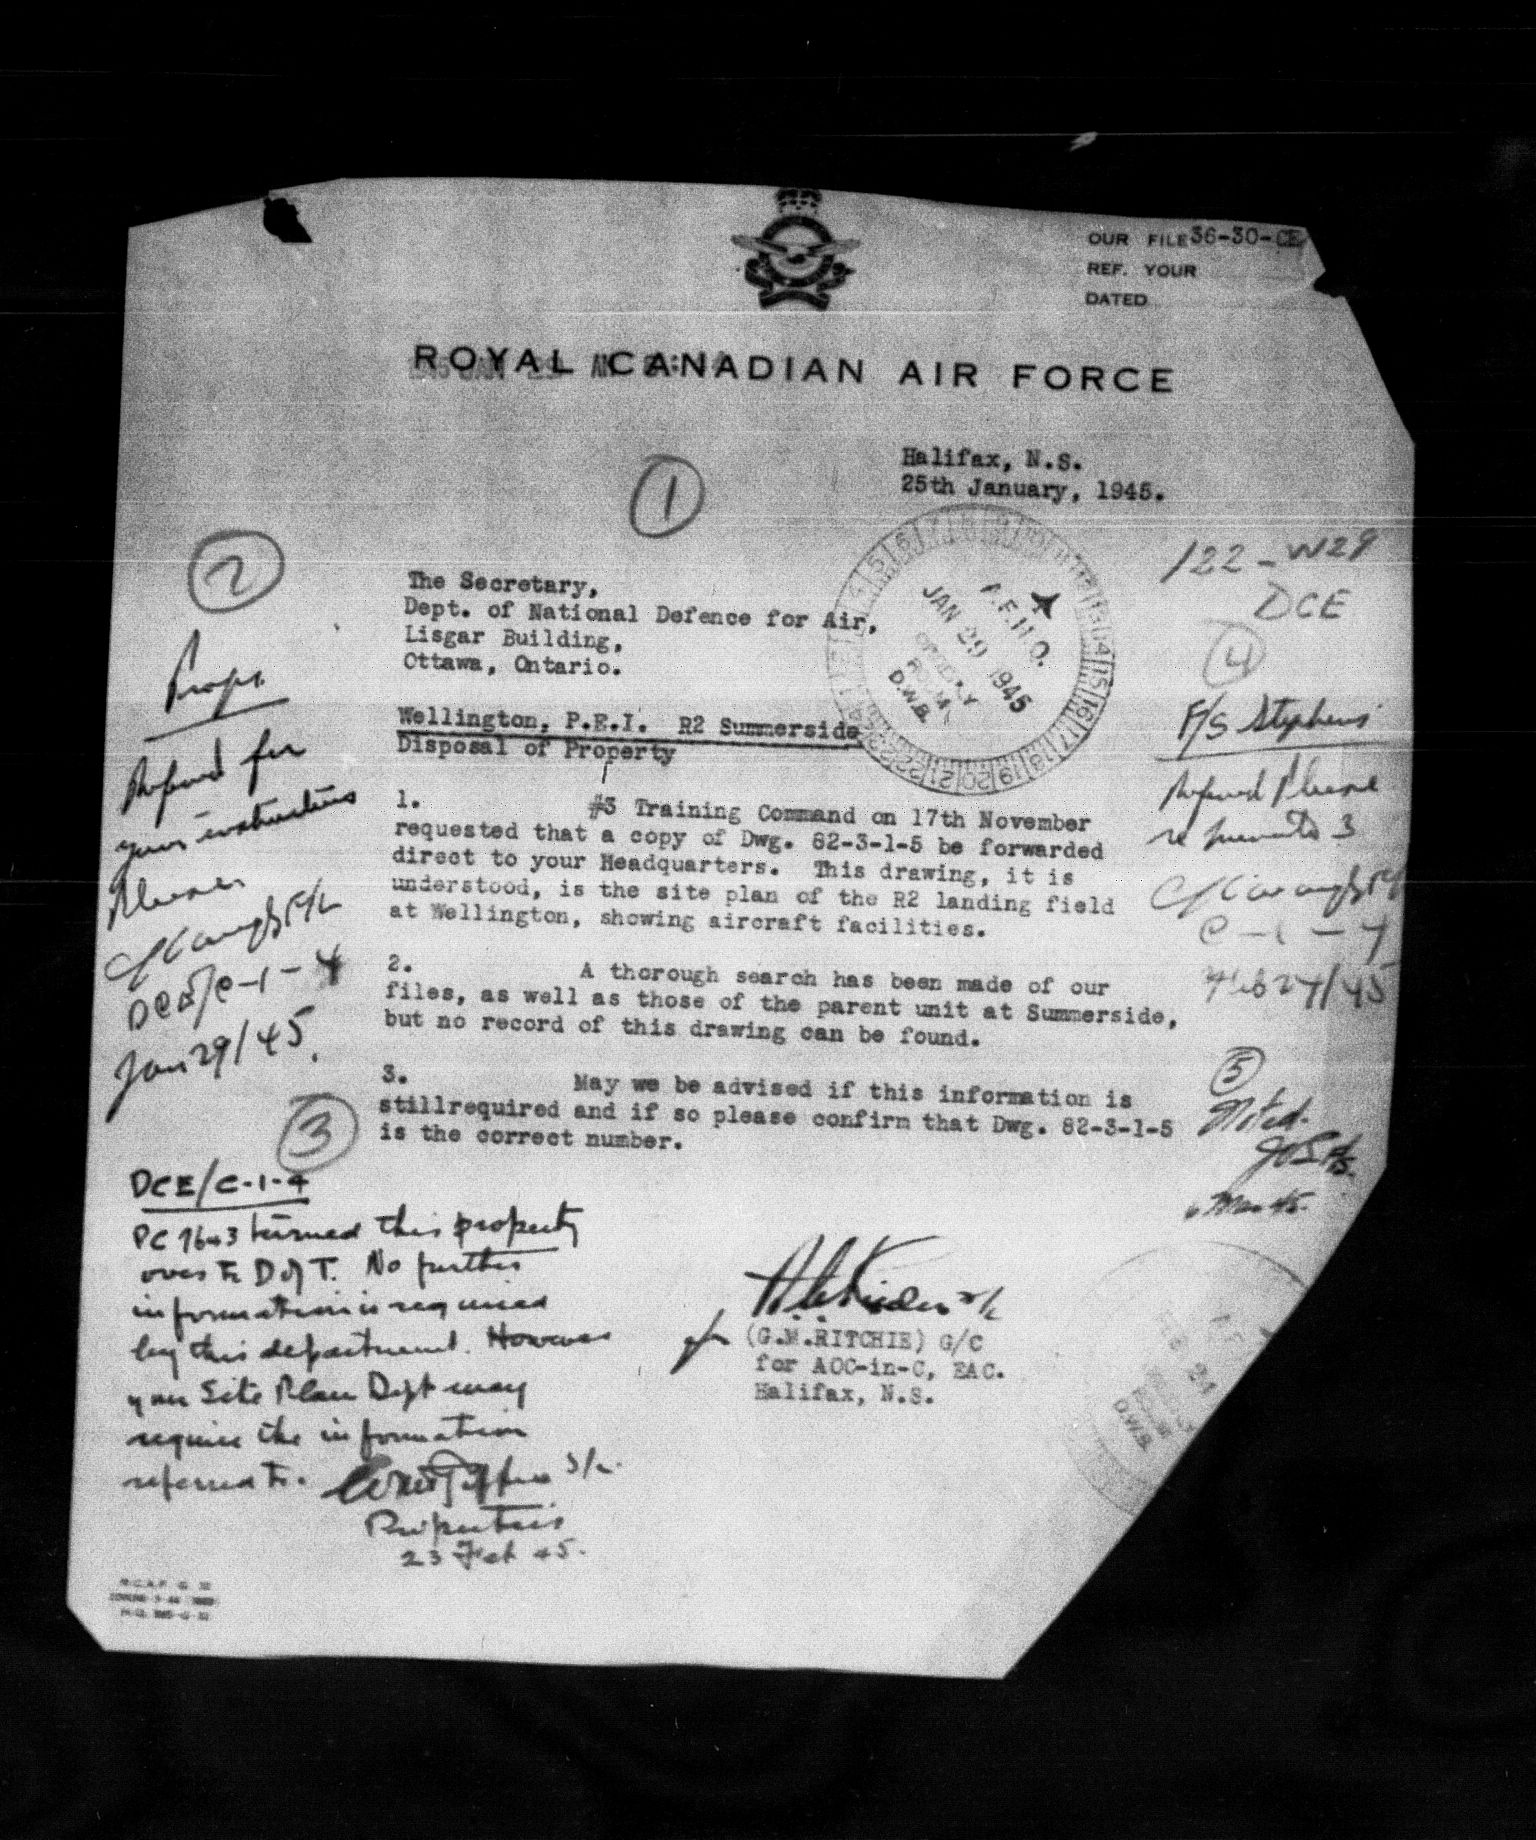 OUR FILE 36-30-CE
REF. YOUR
DATED
ROYAL CANADIAN AIR FORCE
Halifax, N.S.
25th January, 1945.
1
122-W29
DCE
The Secretary,
Dept. of National Defence for Air,
Lisgar Building,
Ottawa, Ontario.
A.F.H.Q.
JAN 29 1945
D.W.B.
Wellington, P.E.I. R2 Summerside
Disposal of Property
1. #3 Training Command on 17th November
requested that a copy of Dwg. 82-3-1-5 be forwarded
direct to your Headquarters. This drawing, it is
understood, is the site plan of the R2 landing field
at Wellington, showing aircraft facilities.
2. A thorough search has been made of our
files, as well as those of the parent unit at Summerside,
but no record of this drawing can be found.
3. May we be advised if this information is
stillrequired and if so please confirm that Dwg. 82-3-1-5
is the correct number.
for
(G.M.RITCHIE) G/C
for AOC-in-C, EAC.
Halifax, N.S.
2
Props.
Referred for
your instructions
Please
DCE/C-1-4
Jan 29/45.
3
DCE/C-1-4
PC 7643 turned this property
over to D of T. No further
information is required
by this department. However
your Site Plan Dept may
require the information
referred to.
S/L.
Properties
23 Feb 45.
4
F/S Stephens
Referred Please
re minute 3
C-1-4
Feb 27/45
5
Noted.
6 Mar 45.
D.W.B.
R.C.A.F. G 32